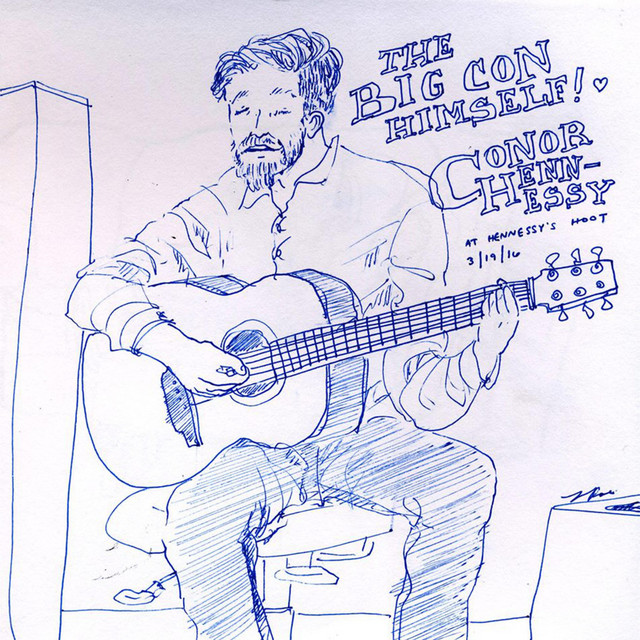 THE
BIG CON
HIMSELF! ♥
CONOR
HENN-
ESSY
AT HENNESSY'S HOOT
3/19/16